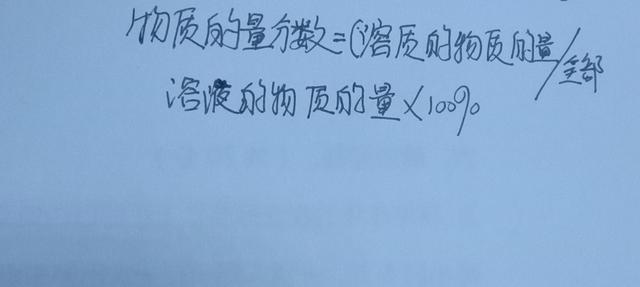 物质的量分数=(溶质的物质的量/全部
溶液的物质的量×100%